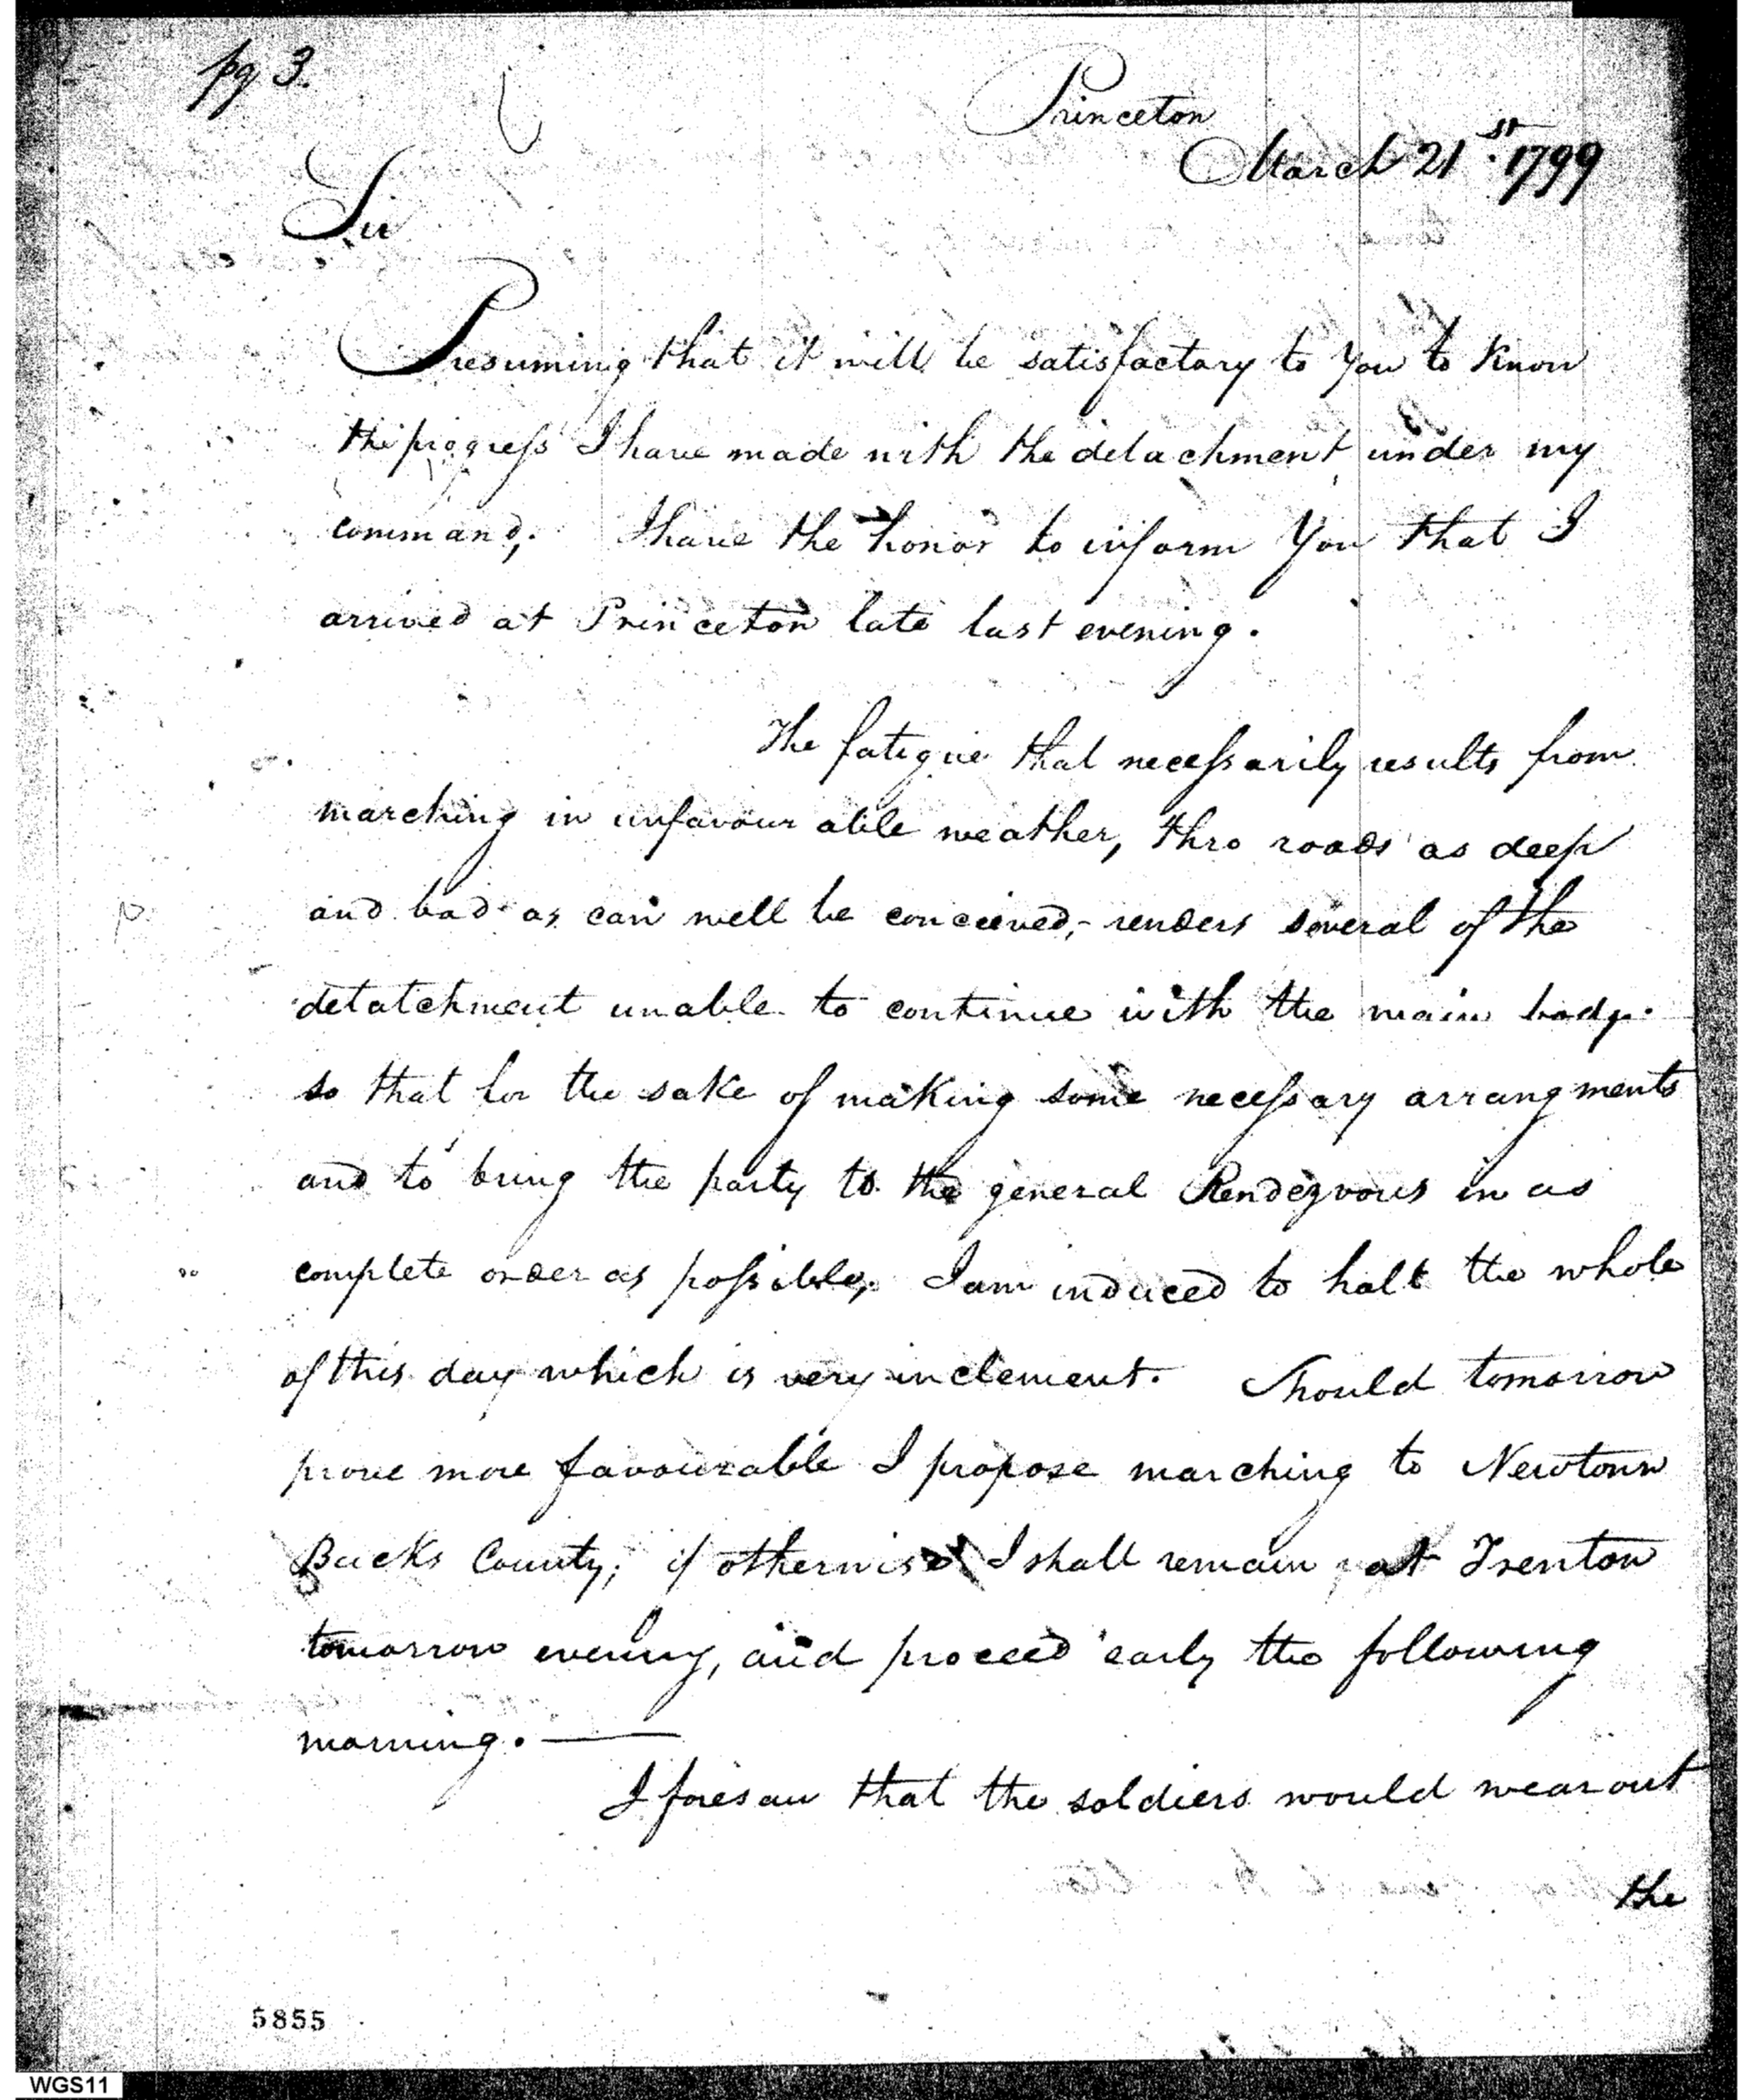 pg 3.
Princeton
March 21st. 1799
Sir
Presuming that it will be satisfactory to You to Know
the progress I have made with the detachment under my
command; I have the honor to inform You that I
arrived at Princeton late last evening.
The fatigue that necessarily results from
marching in unfavourable weather, thro roads as deep
and bad as can well be concieved, - renders several of the
detatchment unable to continue with the main body.
so that for the sake of making some necessary arrangments
and to bring the party to the general Rendezvous in as
complete order as possible, I am induced to halt the whole
of this day which is very inclement. Should tomorrow
prove more favourable I propose marching to Newtown
Bucks County; if otherwise I shall remain at Trenton
tomorrow evening, and proceed early the following
morning. —
I foresaw that the soldiers would wear out
the
5855
WGS11